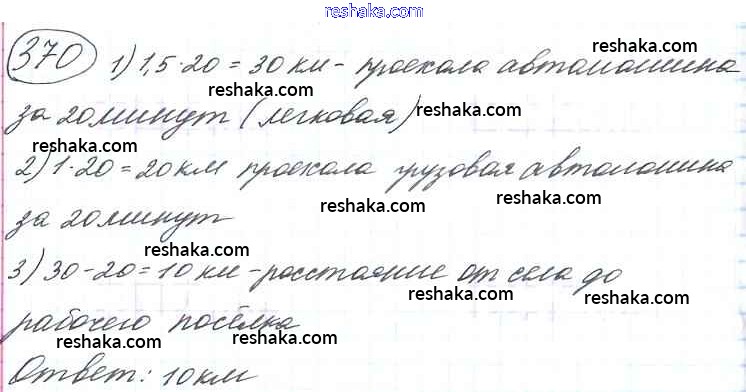 reshaka.com
370 1) 1,5·20 = 30 км - проехала автомашина
reshaka.com
reshaka.com
за 20 минут (легковая) reshaka.com
reshaka.com
2) 1·20 = 20 км проехала грузовая автомашина
reshaka.com
reshaka.com
за 20 минут
reshaka.com
3) 30-20 = 10 км - расстояние от села до
reshaka.com
reshaka.com
рабочего посёлка
reshaka.com
reshaka.com
Ответ: 10 км